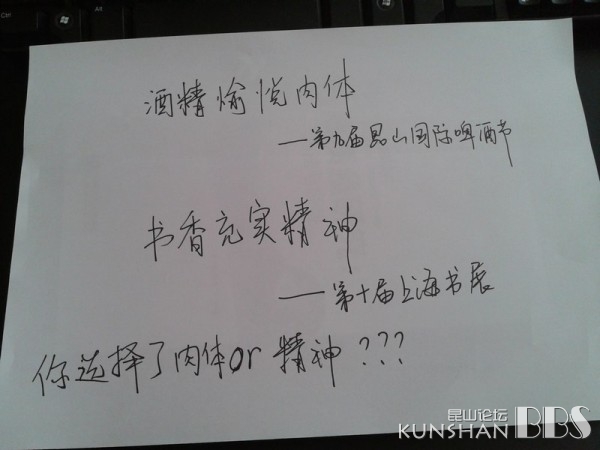 酒精愉悦肉体
——第九届昆山国际啤酒节
书香充实精神
——第十届上海书展
你选择了肉体or精神???
昆山论坛
KUNSHAN BBS